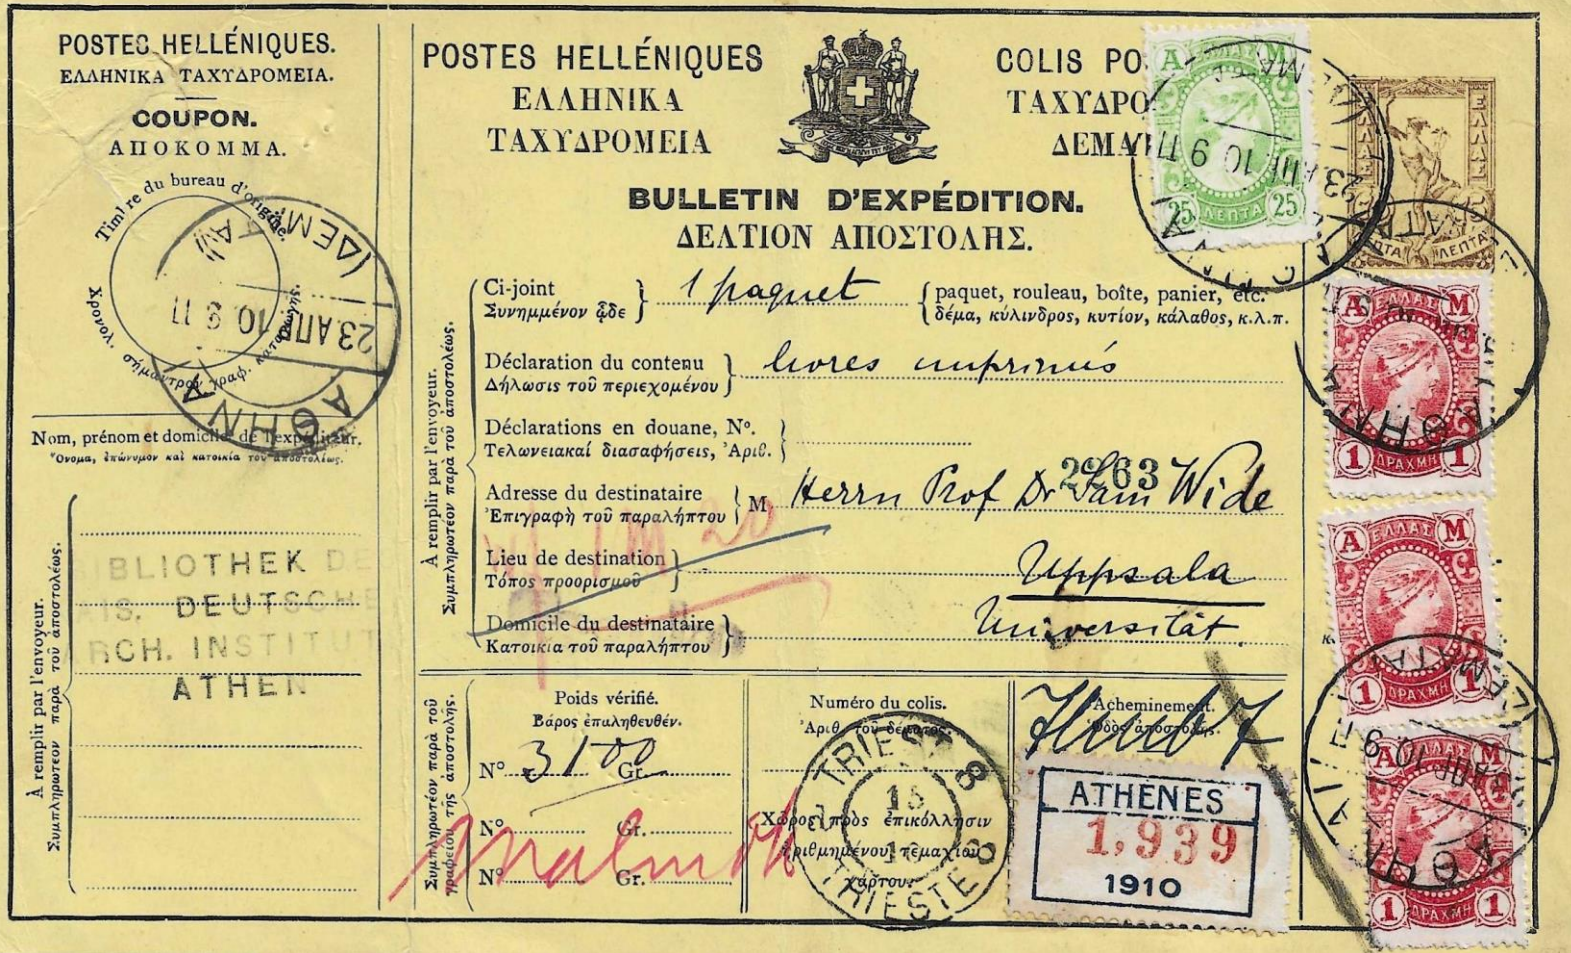 POSTES HELLÉNIQUES.
ΕΛΛΗΝΙΚΑ ΤΑΧΥΔΡΟΜΕΙΑ.
COUPON.
ΑΠΟΚΟΜΜΑ.
Timbre du bureau d'origine.
Χρονολ. σήμαντρον γραφ. καταγωγῆς.
ΑΘΗΝΑ (ΔΕΜ
23 ΑΠΡ 10 9 Π
Nom, prénom et domicile de l'expéditeur.
Ὄνομα, ἐπώνυμον καὶ κατοικία τοῦ ἀποστολέως.
A remplir par l'envoyeur.
Συμπληρωτέον παρὰ τοῦ ἀποστολέως.
BIBLIOTHEK DE
AIS. DEUTSCHE
ARCH. INSTITUT
ATHEN
POSTES HELLÉNIQUES
ΕΛΛΗΝΙΚΑ
ΤΑΧΥΔΡΟΜΕΙΑ
COLIS PO
ΤΑΧΥΔΡΟ
ΔΕΜΑΤ
BULLETIN D'EXPÉDITION.
ΔΕΛΤΙΟΝ ΑΠΟΣΤΟΛΗΣ.
A remplir par l'envoyeur.
Συμπληρωτέον παρὰ τοῦ ἀποστολέως.
Ci-joint 1 paquet paquet, rouleau, boîte, panier, etc.
Συνημμένον ᾧδε δέμα, κύλινδρος, κυτίον, κάλαθος, κ.λ.π.
Déclaration du contenu livres imprimés
Δήλωσις τοῦ περιεχομένου
Déclarations en douane, Nº.
Τελωνειακαί διασαφήσεις, Ἀριθ.
2263
Adresse du destinataire M Herrn Prof Dr Sam Wide
Ἐπιγραφὴ τοῦ παραλήπτου
M 20
Lieu de destination Uppsala
Τόπος προορισμοῦ
Domicile du destinataire Universität.
Κατοικία τοῦ παραλήπτου
Συμπληρωτέον παρὰ τοῦ
γραφείου τῆς ἀποστολῆς.
Poids vérifié.
Βάρος ἐπαληθευθέν.
Nº 3100 Gr.
Nº Gr.
Nº Gr.
Malmö
Numéro du colis.
Ἀριθ. τοῦ δέματος.
Χῶρος πρὸς ἐπικόλλησιν
ἀριθμημένου τεμαχίου
χάρτου.
TRIEST 8
15
10
TRIESTE 8
Acheminement.
Ὁδὸς ἀποστολῆς.
ATHENES
1,939
1910
ΕΛΛΑΣ
Α Μ
25 ΛΕΠΤΑ 25
ΑΘΗΝΑ
23 ΑΠΡ 10 9 Π
ΕΛΛΑΣ
ΛΕΠΤΑ ΛΕΠΤΑ
Α ΕΛΛΑΣ Μ
1 ΔΡΑΧΜΗ 1
ΑΘΗΝΑ
Α ΕΛΛΑΣ Μ
1 ΔΡΑΧΜΗ 1
Α ΕΛΛΑΣ Μ
1 ΔΡΑΧΜΗ 1
ΑΘΗΝΑ